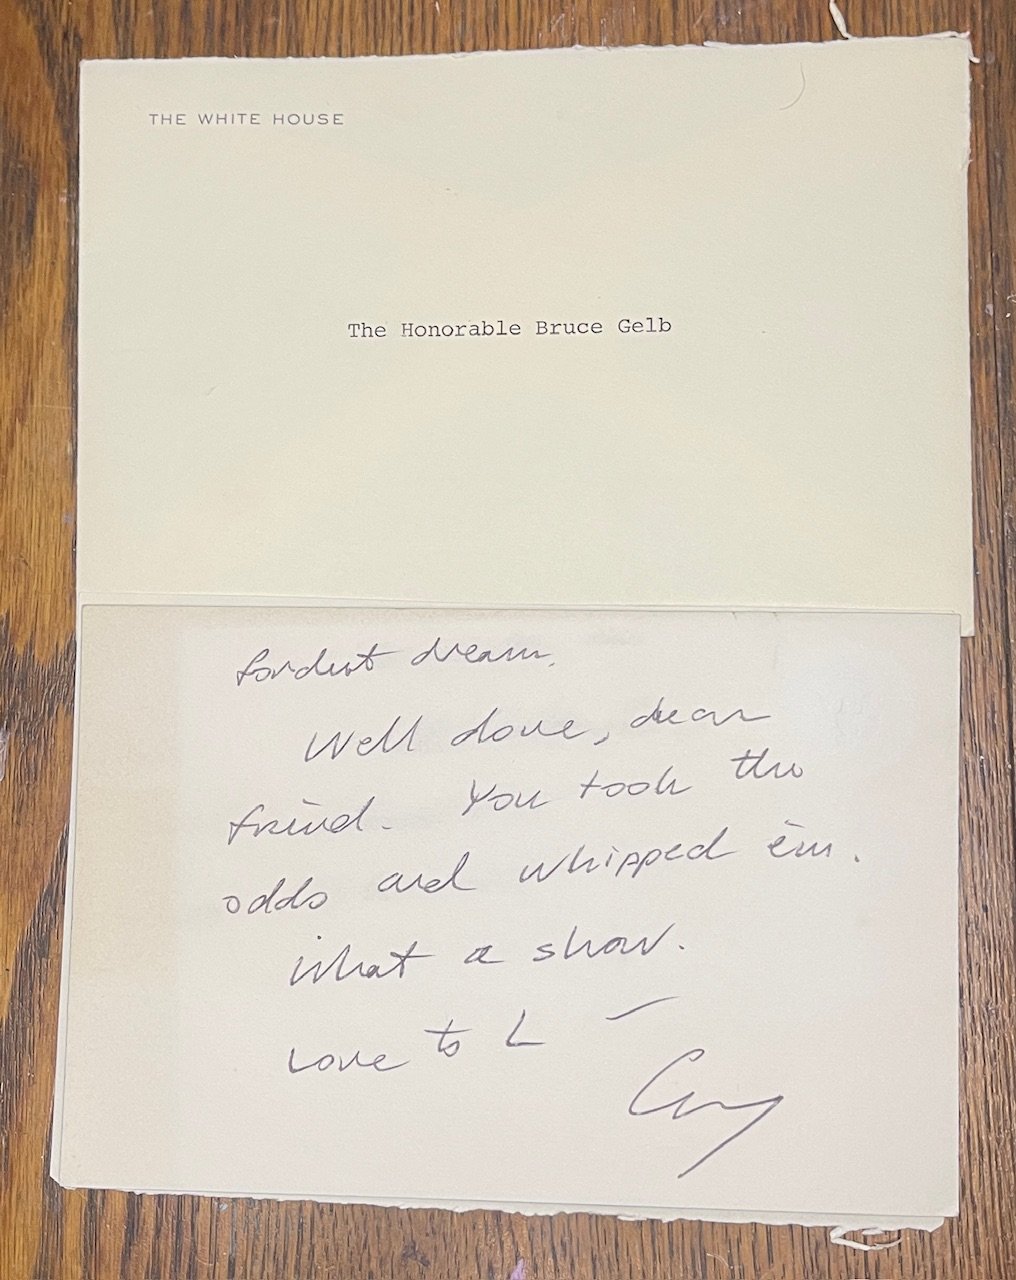 THE WHITE HOUSE
The Honorable Bruce Gelb
fondest dream.
Well done, dear
friend. You took the
odds and whipped 'em.
What a show.
Love to L —